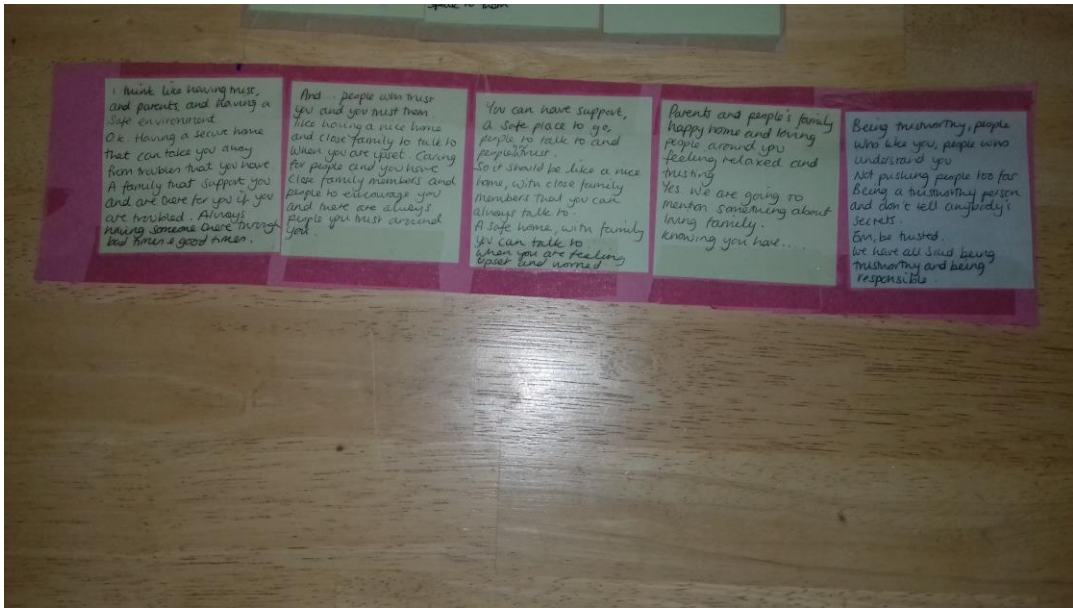 speak to them
I think like having trust,
and parents, and having a
safe environment
Ok. Having a secure home
that can take you away
from troubles that you have
A family that support you
and are there for you if you
are troubled. Always
having someone there through
bad times & good times.
And... people who trust
you and you trust them.
like having a nice home
and close family to talk to
when you are upset. Caring
for people and you have
close family members and
people to encourage you
and there are always
people you trust around
you.
You can have support,
a safe place to go,
people to talk to and
people trust.
So it should be like a nice
home, with close family
members that you can
always talk to.
A safe home, with family
you can talk to
when you are feeling
upset and worried
Parents and people's family
happy home and loving
people around you
feeling relaxed and
trusting
Yes. We are going to
mention something about
loving family.
knowing you have....
Being trustworthy, people
who like you, people who
understand you
Not pushing people too far
Being a trustworthy person
and don't tell anybody's
secrets.
Em, be trusted.
We have all said being
trustworthy and being
responsible.